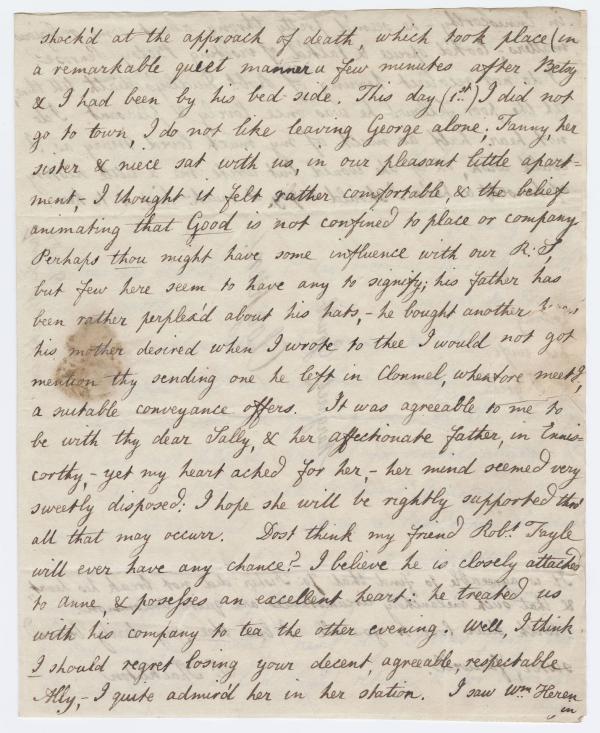 shock'd at the approach of death, which took place (in
a remarkable quiet manner a few minutes after Betsy
& I had been by his bed-side. This day (1st) I did not
go to town, I do not like leaving George alone; Fanny, her
sister & niece sat with us, in our pleasant little apart-
ment,- I thought it felt rather comfortable, & the belief
animating that Good is not confined to place or company
Perhaps thou might have some influence with our R: S,
but few here seem to have any to signify; his father has
been rather perplex'd about his hats,- he bought another
his mother desired when I wrote to thee I would not got
mention thy sending one he left in Clonmel, when
a suitable conveyance offers. It was agreeable to me to
be with thy dear Sally, & her affectionate father, in Ennis-
corthy,- yet my heart ached for her,- her mind seemed very
sweetly disposed: I hope she will be rightly supported thro'
all that may occurr. Dost think my friend Robt. Fayle
will ever have any chance?- I believe he is closely attached
to Anne, & posesses an excellent heart: he treated us
with his company to tea the other evening. Well, I think
I should regret losing your decent, agreeable, respectable
Ally,- I quite admir'd her in her station. I saw Wm. Heren
in